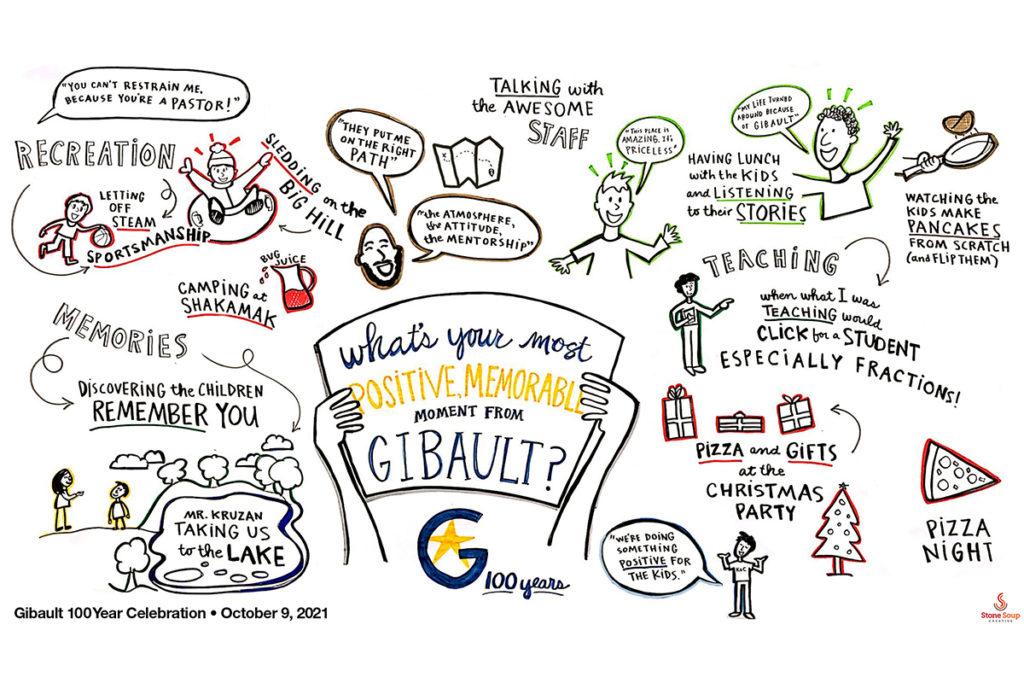 "YOU CAN'T RESTRAIN ME,
BECAUSE YOU'RE A PASTOR!"
RECREATION
LETTING
OFF
STEAM
SPORTSMANSHIP
SLEDDING on the
BIG HILL
BUG JUICE
CAMPING at
SHAKAMAK
"THEY PUT ME
ON THE RIGHT
PATH"
"the ATMOSPHERE,
the ATTITUDE,
the MENTORSHIP"
TALKING with
the AWESOME
STAFF
"THIS PLACE IS
AMAZING. IT'S
PRICELESS"
"MY LIFE TURNED
AROUND BECAUSE
OF GIBAULT"
HAVING LUNCH
with the KIDS
and LISTENING
to their STORIES
WATCHING the
KIDS MAKE
PANCAKES
FROM SCRATCH
(and FLIP THEM)
TEACHING
when what I was
TEACHING would
CLICK for a STUDENT
ESPECIALLY FRACTIONS!
MEMORIES
DISCOVERING the CHILDREN
REMEMBER YOU
MR. KRUZAN
TAKING US
to the LAKE
what's your most
POSITIVE, MEMORABLE
MOMENT FROM
GIBAULT?
G
100 years
PIZZA and GIFTS
at the
CHRISTMAS
PARTY
"WE'RE DOING
SOMETHING
POSITIVE FOR
THE KIDS."
KoC
PIZZA
NIGHT
Gibault 100Year Celebration • October 9, 2021
Stone Soup
CREATIVE